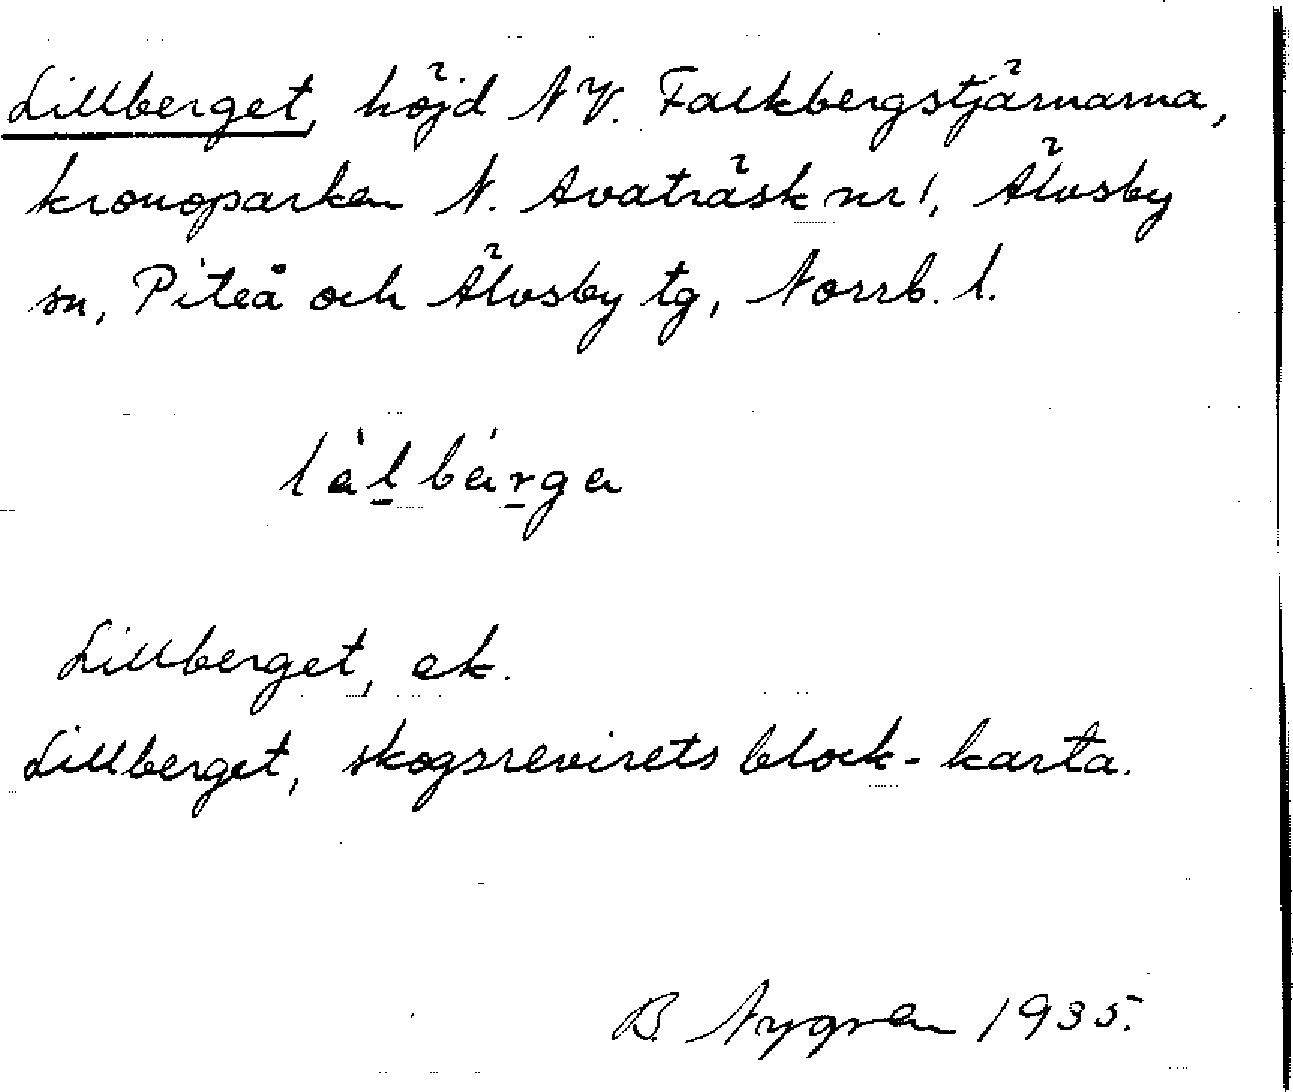 Lillberget, höjd NV. Falkbergstjärnarna,
kronoparken N. Avaträsk nr 1, Älvsby
sn, Piteå och Älvsby tg, Norrb. l.
Lillberget, ek.
Lillberget, skogsrevirets block-karta.
B. Nygren 1935.